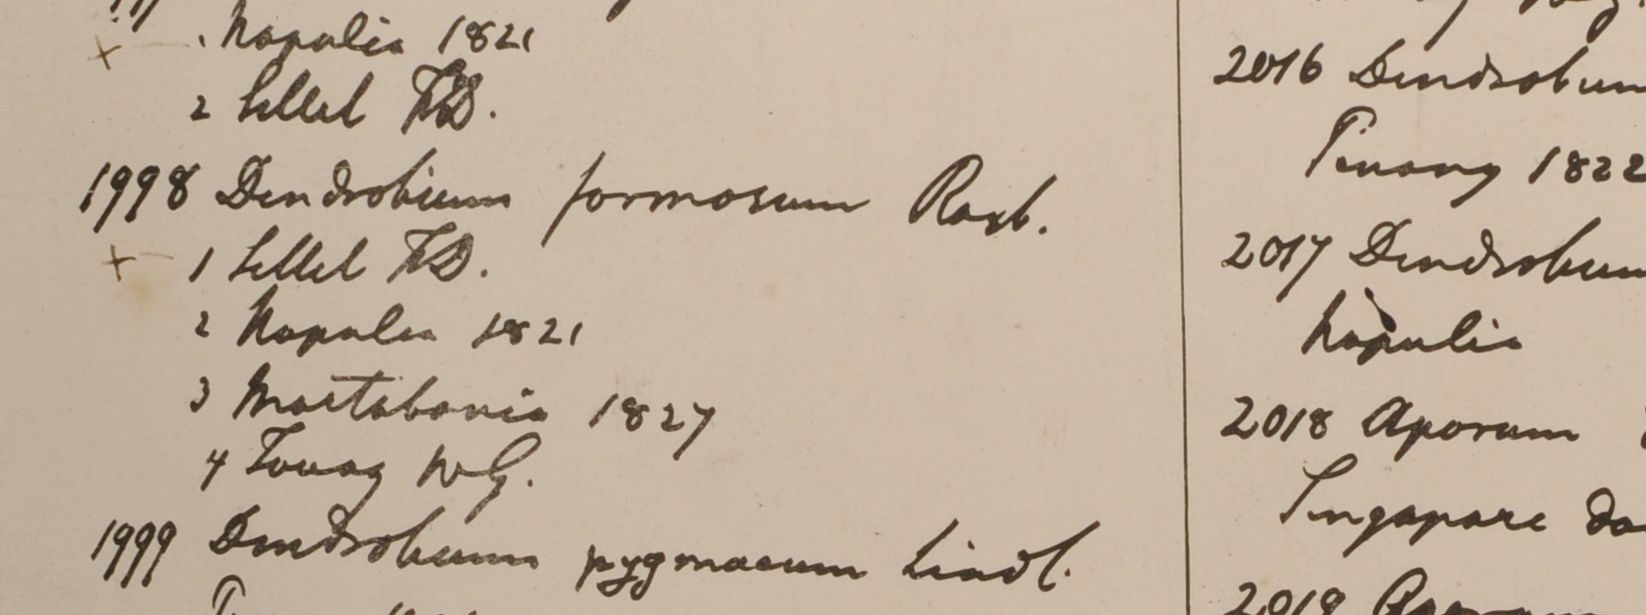 1 Napalia 1821
2 Sillet FD.
1998 Dendrobium formosum Roxb.
+ 1 Sillet FD.
2 Napalia 1821
3 Martabania 1827
4 Tavoy WG.
1999 Dendrobium pygmaeum Lindl.
2016 Dendrobium
Pinang 1822
2017 Dendrobium
Napalia
2018 Aporum
Singapore
2019